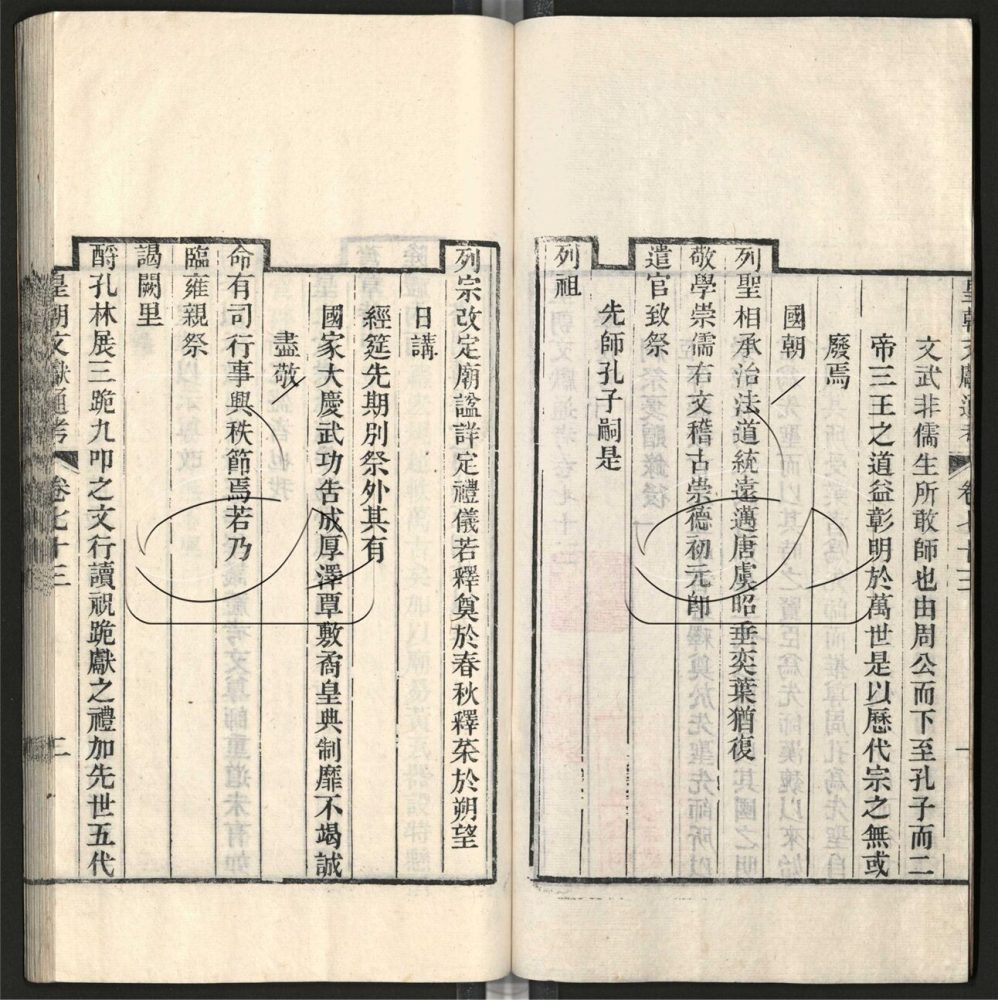 文武非儒生所敢師也由周公而下至孔子而二
帝三王之道益彰明於萬世是以歷代宗之無或
廢焉
國朝
列聖相承治法道統遠邁唐虞昭垂奕葉猶復
敬學崇儒右文稽古崇德初元師
遣官致祭
先師孔子嗣是
列祖
列宗改定廟諡詳定禮儀若釋奠於春秋釋菜於朔望
日講
經筵先期別祭外其有
國家大慶武功告成厚澤覃敷矞皇典制靡不竭誠
盡敬
命有司行事興秩節焉若乃
臨雍親祭
謁闕里
酹孔林展三跪九叩之文行讀祝跪獻之禮加先世五代
皇朝文獻通考 卷七十三 二